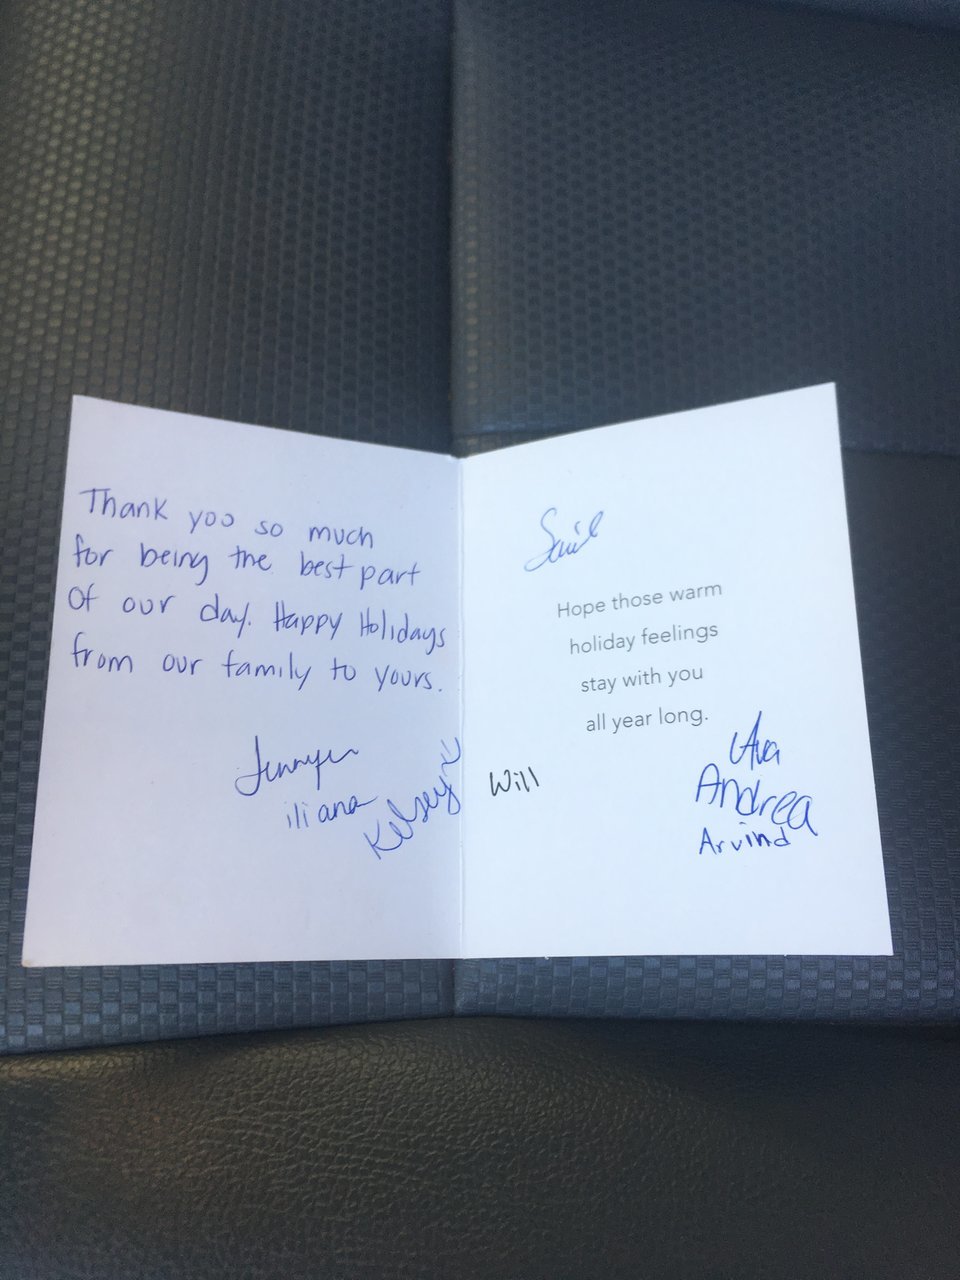 Thank you so much
for being the best part
of our day. Happy Holidays
from our family to yours.
Jennyfer
iliana
Kelsey
Hope those warm
holiday feelings
stay with you
all year long.
Will
Ava
Andrea
Arvind